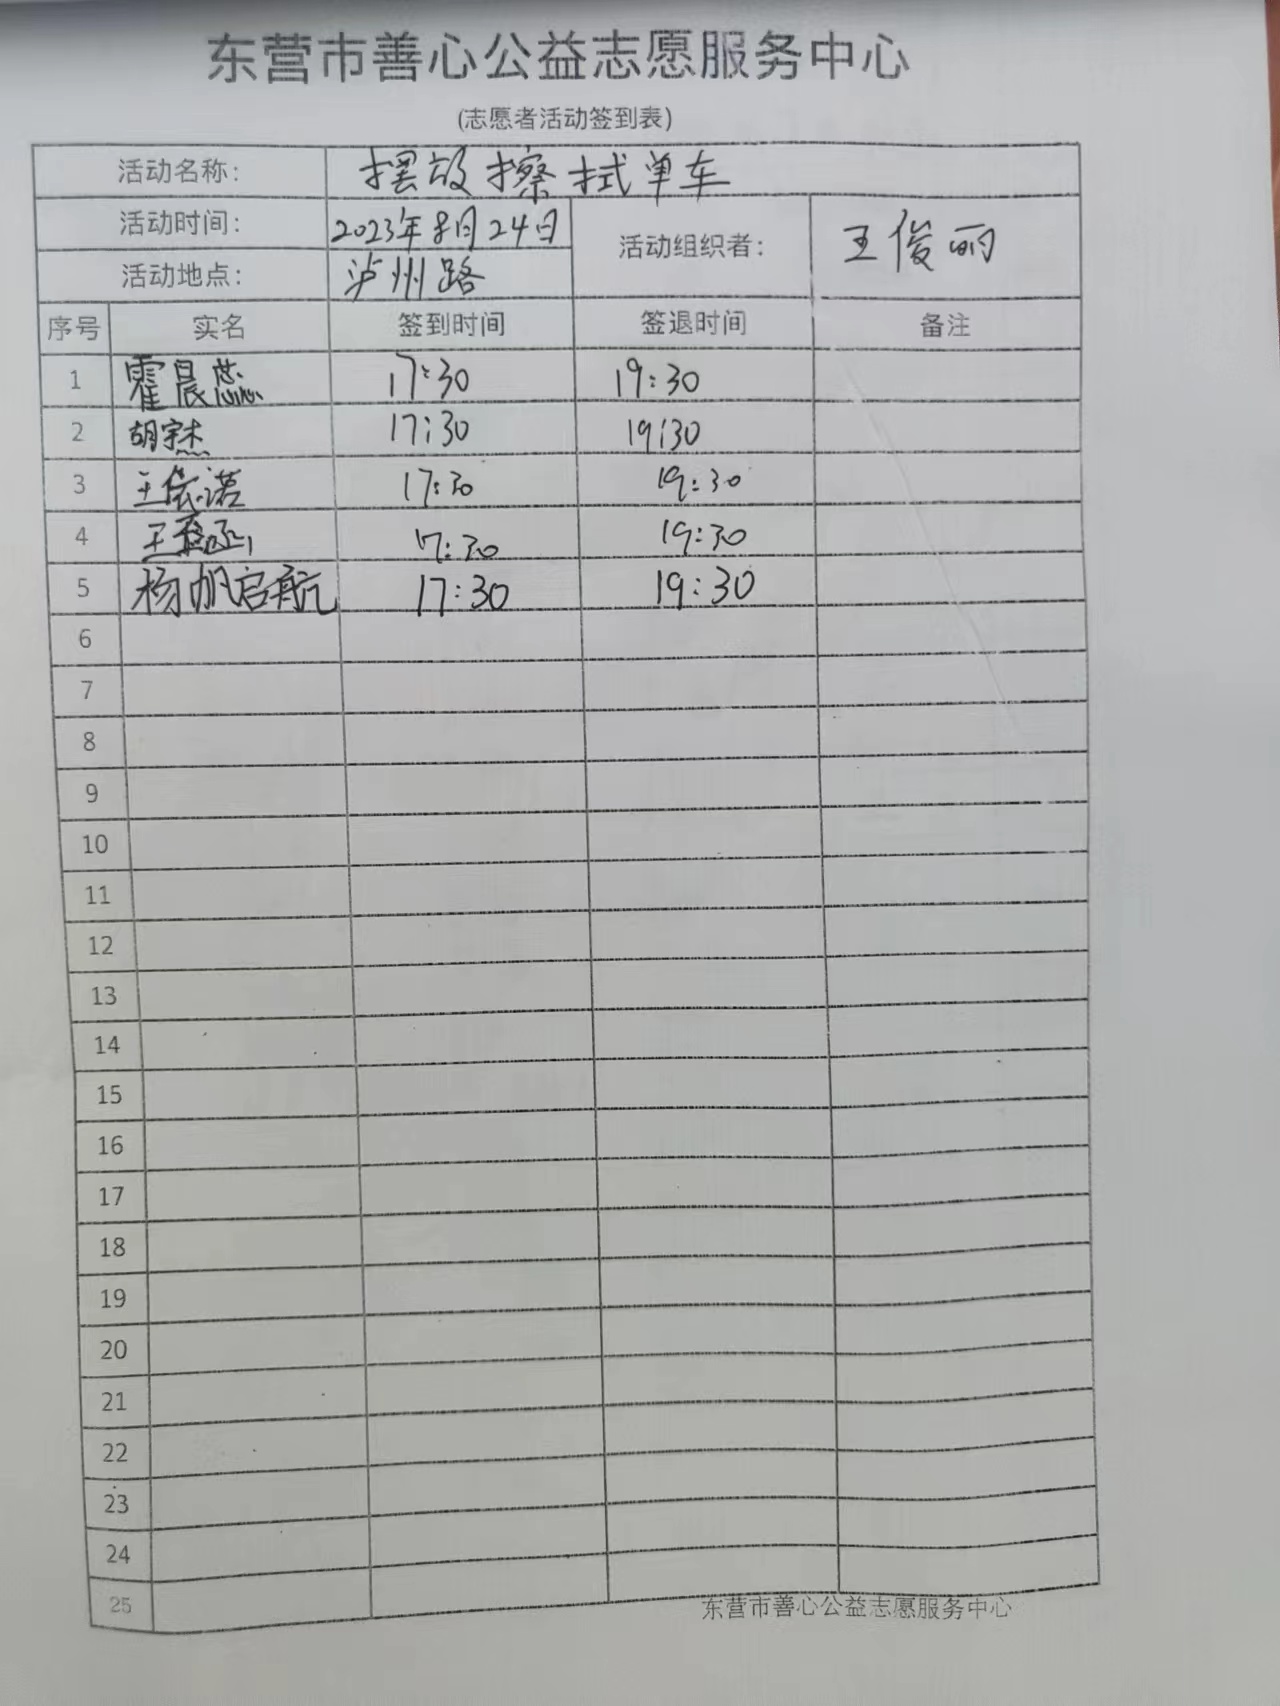 东营市善心公益志愿服务中心
(志愿者活动签到表)
活动名称: 摆放擦拭单车
活动时间: 2023年8月24日 活动组织者: 王俊丽
活动地点: 泸州路
序号 实名 签到时间 签退时间 备注
1 霍晨 17:30 19:30
2 胡宇杰 17:30 19:30
3 王依诺 17:30 19:30
4 王 涵 17:30 19:30
5 杨帆启航 17:30 19:30
6
7
8
9
10
11
12
13
14
15
16
17
18
19
20
21
22
23
24
25
东营市善心公益志愿服务中心